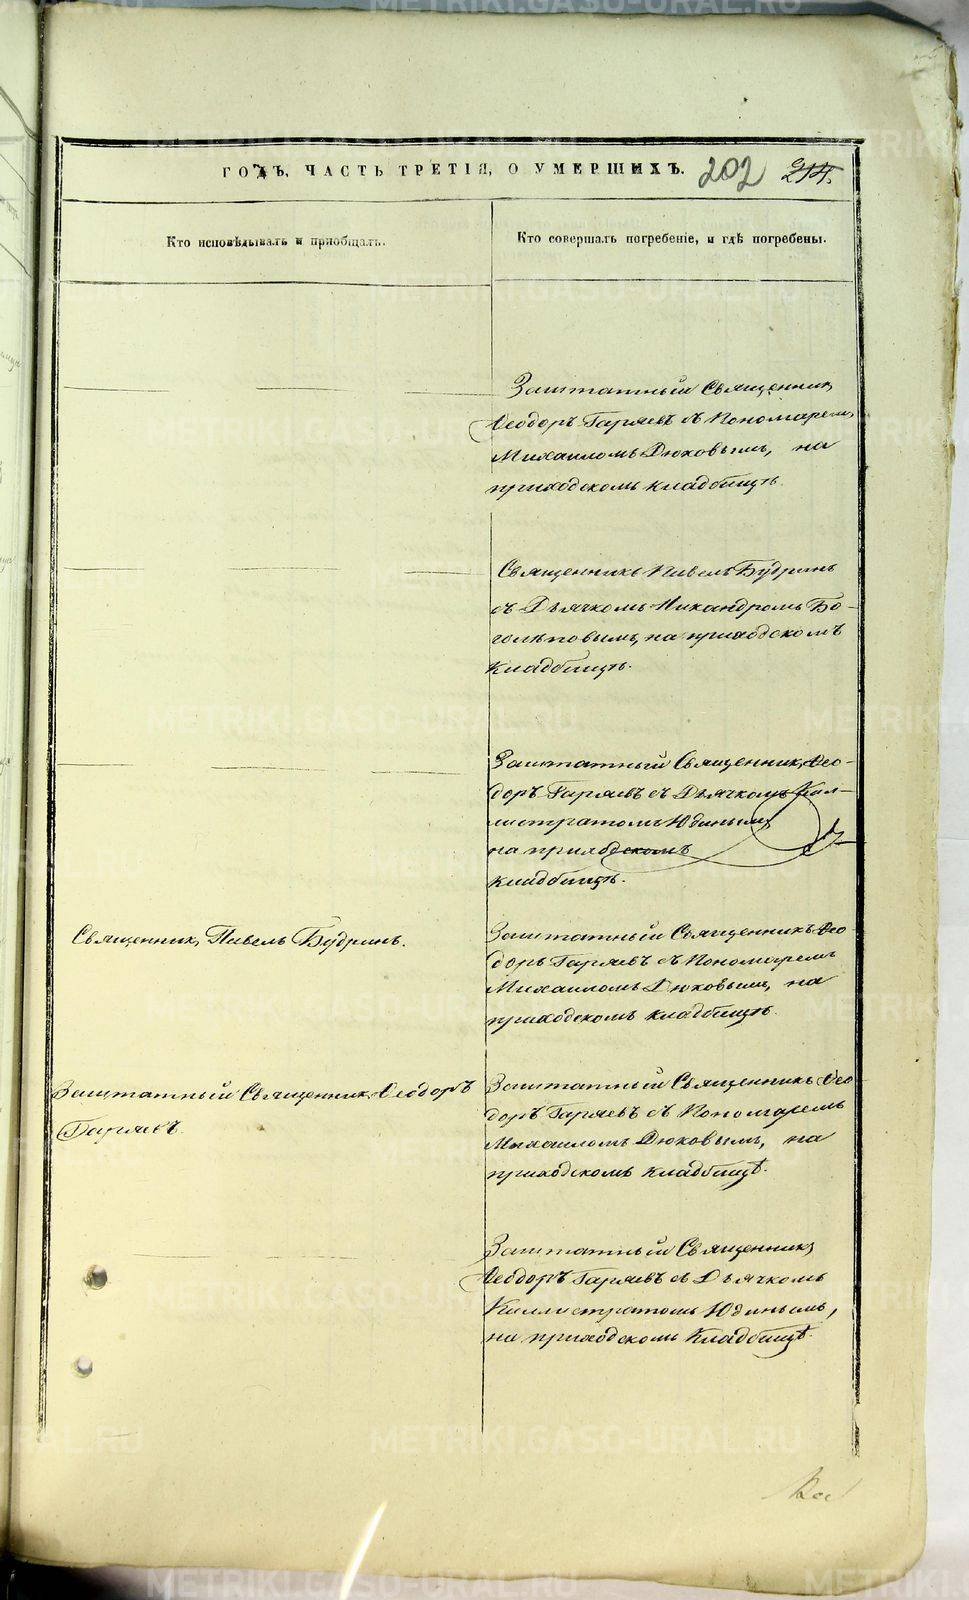 ГОДЪ, ЧАСТЬ ТРЕТІЯ, О УМЕРШИХЪ. 202 214.
Кто исповѣдывалъ и пріобщалъ.
Кто совершалъ погребеніе, и гдѣ погребены.
Заштатный Священникъ
Ѳеодоръ Гаряевъ съ Пономаремъ
Михаиломъ Дюковымъ, на
приходскомъ кладбищѣ.
Священникъ Павелъ Будринъ
съ Дьячкомъ Никандромъ Бо-
голѣповымъ, на приходскомъ
кладбищѣ.
Заштатный Священникъ Ѳео-
доръ Гаряевъ съ Дьячкомъ Кал-
листратомъ Юдинымъ,
на приходскомъ
кладбищѣ.
Священникъ Павелъ Будринъ.
Заштатный Священникъ Ѳео-
доръ Гаряевъ съ Пономаремъ
Михаиломъ Дюковымъ, на
приходскомъ кладбищѣ.
Заштатный Священникъ Ѳеодоръ
Гаряевъ.
Заштатный Священникъ Ѳео-
доръ Гаряевъ съ Пономаремъ
Михаиломъ Дюковымъ, на
приходскомъ кладбищѣ.
Заштатный Священникъ
Ѳеодоръ Гаряевъ съ Дьячкомъ
Каллистратомъ Юдинымъ,
на приходскомъ кладбищѣ.
METRIKI.GASO-URAL.RU